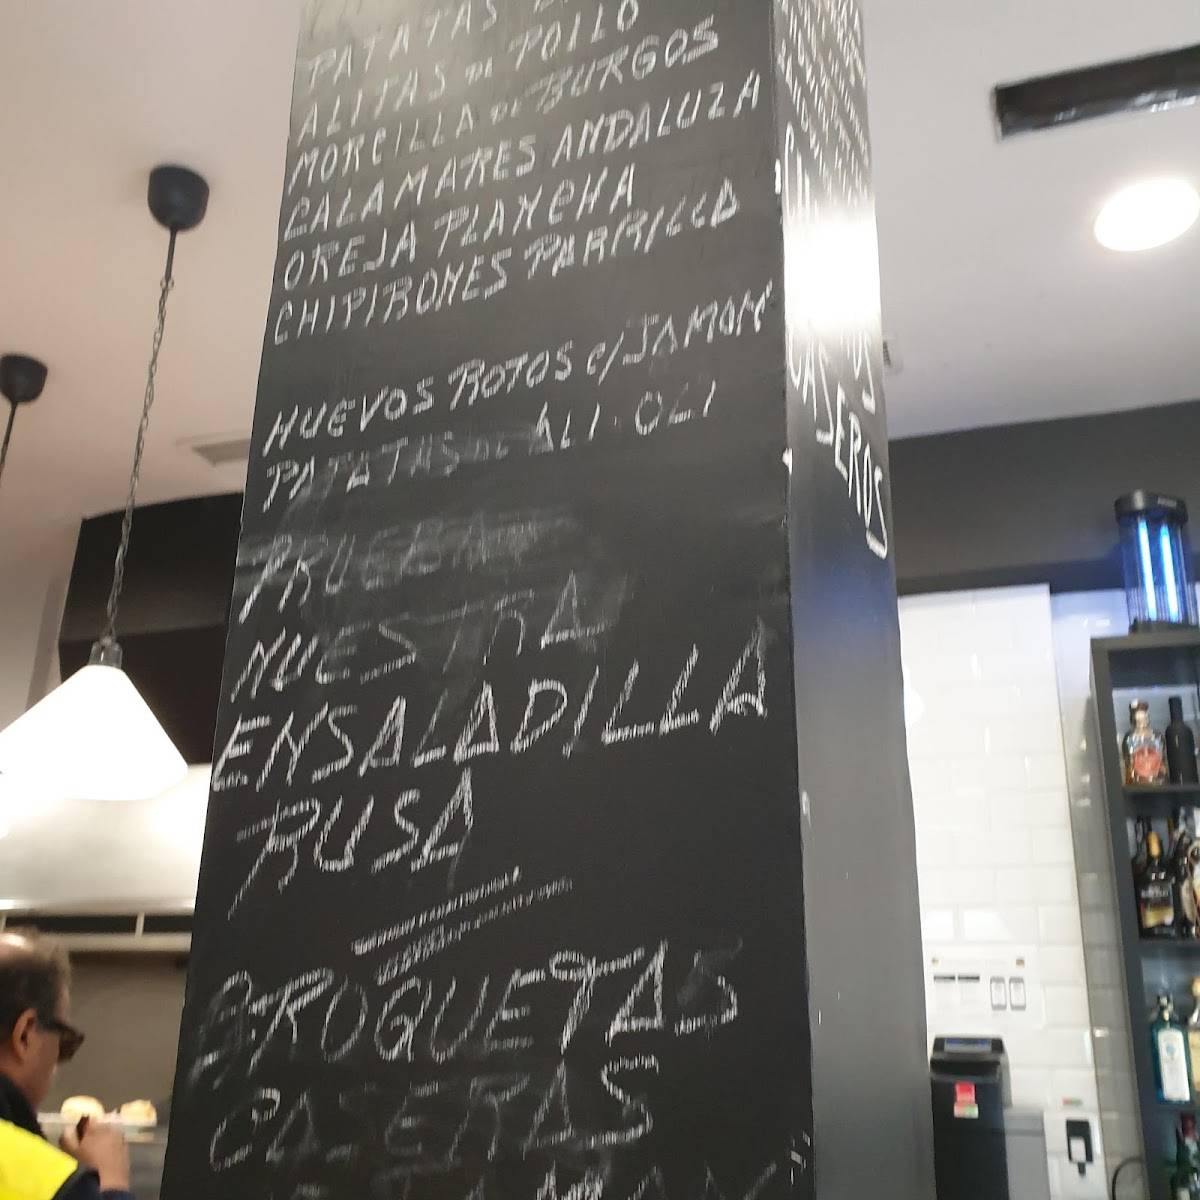 PATATAS
ALITAS DE POLLO
MORCILLA DE BURGOS
CALAMARES ANDALUZA
OREJA PLANCHA
CHIPIRONES PARRILLA
HUEVOS ROTOS C/JAMON
PATATAS DE ALI-OLI
PRUEBA
NUESTRA
ENSALADILLA
RUSA
CROQUETAS
CASERAS
CASEROS